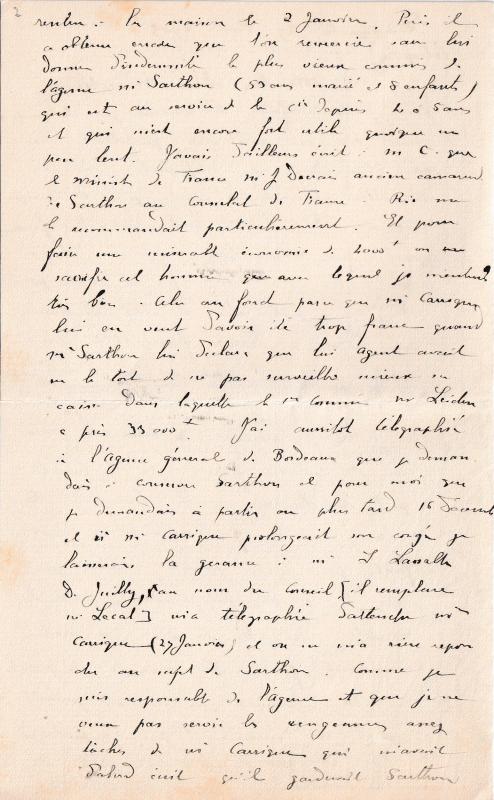 2
rentrer à la maison le 2 Janvier. Puis il
a obtenu encore que l'on remercie sans lui
donner d'indemnité le plus vieux commis de
l'agence mr Sarthou (53 ans marié et 8 enfants)
qui est au service de la Cie depuis ans
et qui m'est encore fort utile quoique un
peu lent. J'avais d'ailleurs écrit à mr C. que
le ministre de France mr ancien camarade
de Sarthou au Consulat de France à Rio me
le recommandait particulièrement. Et pour
faire une misérable économie de 4000 f on me
sacrifie cet homme avec lequel je m'entends
très bien. Cela au fond parce que mr Carrigue
lui en veut d'avoir été trop franc quand
mr Sarthou lui déclara que lui agent avait
eu le tort de ne pas surveiller mieux sa
caisse dans laquelle le 1er commis mr
a pris 33000 f. J'ai aussitôt télégraphié
à l'agence général de Bordeaux que je deman
dais à conserver Sarthou et pour moi que
je demandais à partir au plus tard 16 Décemb
et si mr Carrigue prolongeait son congé je
laisserais la gérance à mr
D. Juilly, au nom du Conseil [il remplace
mr Lecat] m'a télégraphié d'attendre mr
Carrigue (27 Janvier) et on ne m'a rien répon
du au sujet de Sarthou. Comme je
suis responsable de l'agence et que je ne
veux pas servir les vengeances assez
lâches de mr Carrigue qui m'avait
d'abord écrit qu'il garderait Sarthou